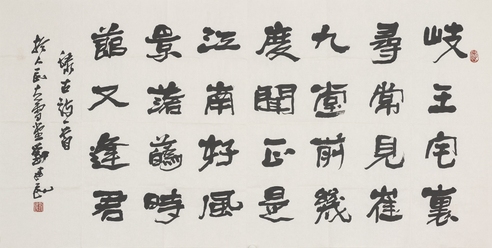 岐王宅裏
尋常見崔
九堂前幾
度聞正是
江南好風
景落花時
節又逢君
錄古詩一首
於人民大學堂